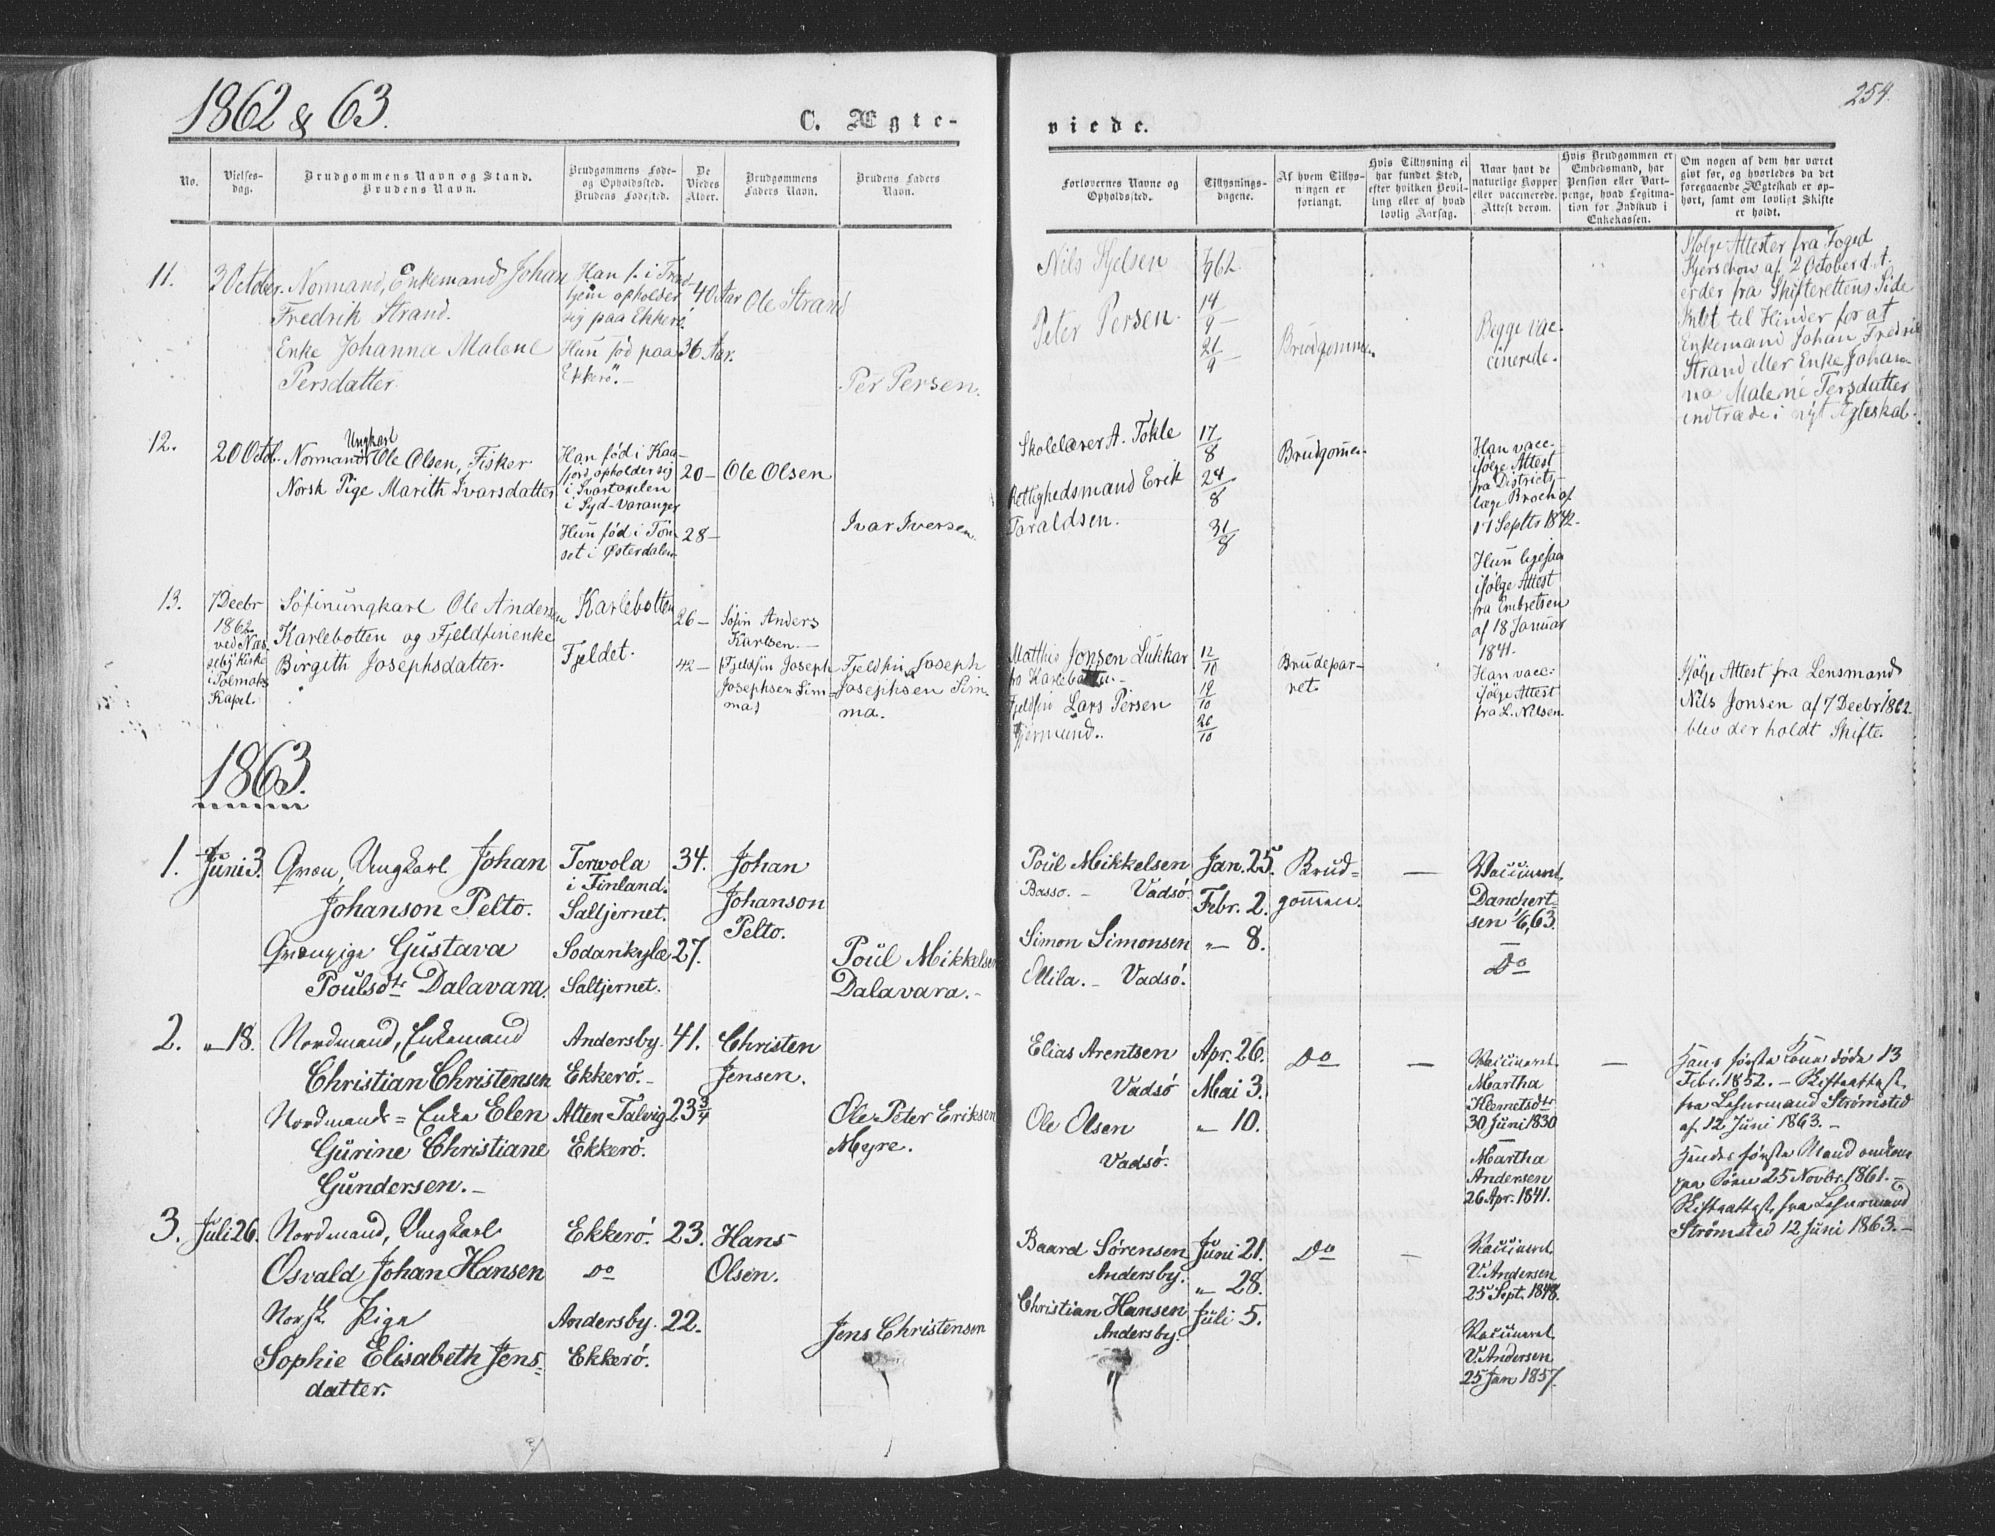 1862 & 63.
C. Ægte-
viede.
254.
No.
Vielses-
dag.
Brudgommens Navn og Stand.
Brudens Navn.
Brudgommens Føde-
og Opholdssted.
Brudens Fødested.
De
Viedes
Alder.
Brudgommens
Faders Navn.
Brudens Faders
Navn.
Forlovernes Navne og
Opholdssted.
Tillysnings-
dagene.
Af hvem Tillys-
ningen er
forlangt.
Hvis Tillysning ei
har fundet Sted,
efter hvilken Bevil-
ling eller af hvad
lovlig Aarsag.
Naar havt de
naturlige Kopper
eller vaccinerede.
Attest derom.
Hvis Brudgommen er
Embedsmand, har
Pension eller Vart-
penge, hvad Legitima-
tion for Indskud i
Enkekassen.
Om nogen af dem har været
gift før, og hvorledes da det
foregaaende Ægteskab er op-
hørt, samt om lovligt Skifte
er holdt.
11.
3 October.
Normand, Enkemand Johan
Fredrik Strand.
Enke Johanna Malene
Persdatter.
Han f. i
opholder
sig paa Ekkerö.
Hun född paa
Ekkerö.-
40 Aar
36 Aar.
Ole Strand
Per Persen.
Nils
Peter Persen.
7/9 62.
14/9 -
21/9 -
Brudgommen.
Begge vac-
cinerede.
Ifølge Attester fra Foged
Kjerschow af 2 October d. A.
er der fra Skifterettens Side
Intet til Hinder for at
Enkemand Johan Fredrik
Strand eller Enke Johan-
na Malene Persdatter
indtræde i nyt Ægteskab.
12.
20 Octob.
Normand Ungkarl Ole Olsen, Fisker
Norsk Pige Marith Ivarsdatter
Han fød i Kaa-
fjord, opholder sig
i Svartaxelen
i Syd-Varanger
Hun fød i Tön-
set i Østerdalen
20 -
28 -
Ole Olsen
Ivar Iversen
Skolelærer A. Tokle
Rettighedsmand Erik
Taraldsen.
17/8
24/8
31/8
Brudgomen.
Han vacc.
ifølge Attest
fra Districts-
læge Broch af
11 Septbr 1842.
Hun ligesaa
ifølge Attest
fra Embretsen
af 18 Januar
1841.
13.
7 Decbr
1862
ved Næs-
seby Kirke
i Polmaks
Kapel.
Söfinungkarl Ole Andersen
Karlebotten og Fjeldfinenke
Birgith Josephsdatter.
Karlebotten
Fjeldet.
26 -
42 -
Søfin Anders
Karlsen.-
Fjeldfin Joseph
Josephsen Sim-
ma)
Fjeldfin Joseph
Josephsen Sim-
ma.
Matthis Jonsen Lukkar
fra Karlebotten.-
Fjeldfin Lars Persen
Gjermund..
12/10
19/10
26/10
Brudepar-
ret.
Han vacc.
ifølge Attest
fra L. Nilsen.
Ifølge Attest fra Lensmand
Nils Jonsen af 7 Decbr 1862.
blev der holdt Skifte.
1863.
1.
Juni 3.
Qvæn, Ungkarl Johan
Johanson Pelto.
Qvænpige Gustava
Poulsdtr Dalavara.
Torvola
i Finland.
Saltjernet.
Sodankylæ
Saltjernet.
34.
27.
Johan
Johanson
Pelto.
Poul Mikkelsen
Dalavara.-
Poul Mikkelsen
Basso.- Vadsö
Simon Simonsen
Ollila.- Vadsö.
Jan. 25.
Febr. 2.
" 8.
Brud-
gommen.
-
Vaccineret.
Danchert-
sen 1/6, 63.
-
Do
2.
" 18.
Nordmand, Enkemand
Christian Christensen
Nordmands = Enke Elen
Gurine Christiane
Gundersen.-
Andersby.
Ekkerö.-
Alten Talvig
Ekkerö.
41.
23 3/4
Christen
Jensen.
Ole Peter Eriksen
Meyre.
Elias Arentsen
Vadsö
Ole Olsen
Vadsö.
Apr. 26.
Mai 3.
" 10.
Do
-
Vaccineret
Martha
Klemetsdtr
30 Juni 1830
-
Martha
Andersen
26 Apr. 1841.
-
Hans første Kone døde 13
Febr. 1852.- Skifteattest
fra Lehnsmand Strömsted
af 12 Juni 1863.-
Hendes første Mand omkom
paa Søen 25 Novbr. 1861.-
Skifteattest fra Lehnsmand
Strömsted 12 Juni 1863.-
3.
Juli 26.
Nordmand, Ungkarl
Osvald Johan Hansen
Norsk Pige
Sophie Elisabeth Jens-
datter.
Ekkerö.
Do
Andersby.
Ekkerö.
23.
22.
Hans
Olsen.
Jens Christensen
Baard Sörensen
Andersby.
Christian Hansen
Andersby.
Juni 21.
" 28.
Juli 5.
Do
-
Vaccineret
V. Andersen
25 Sept. 1848.
Vaccineret
V. Andersen
25 Jan 1857.